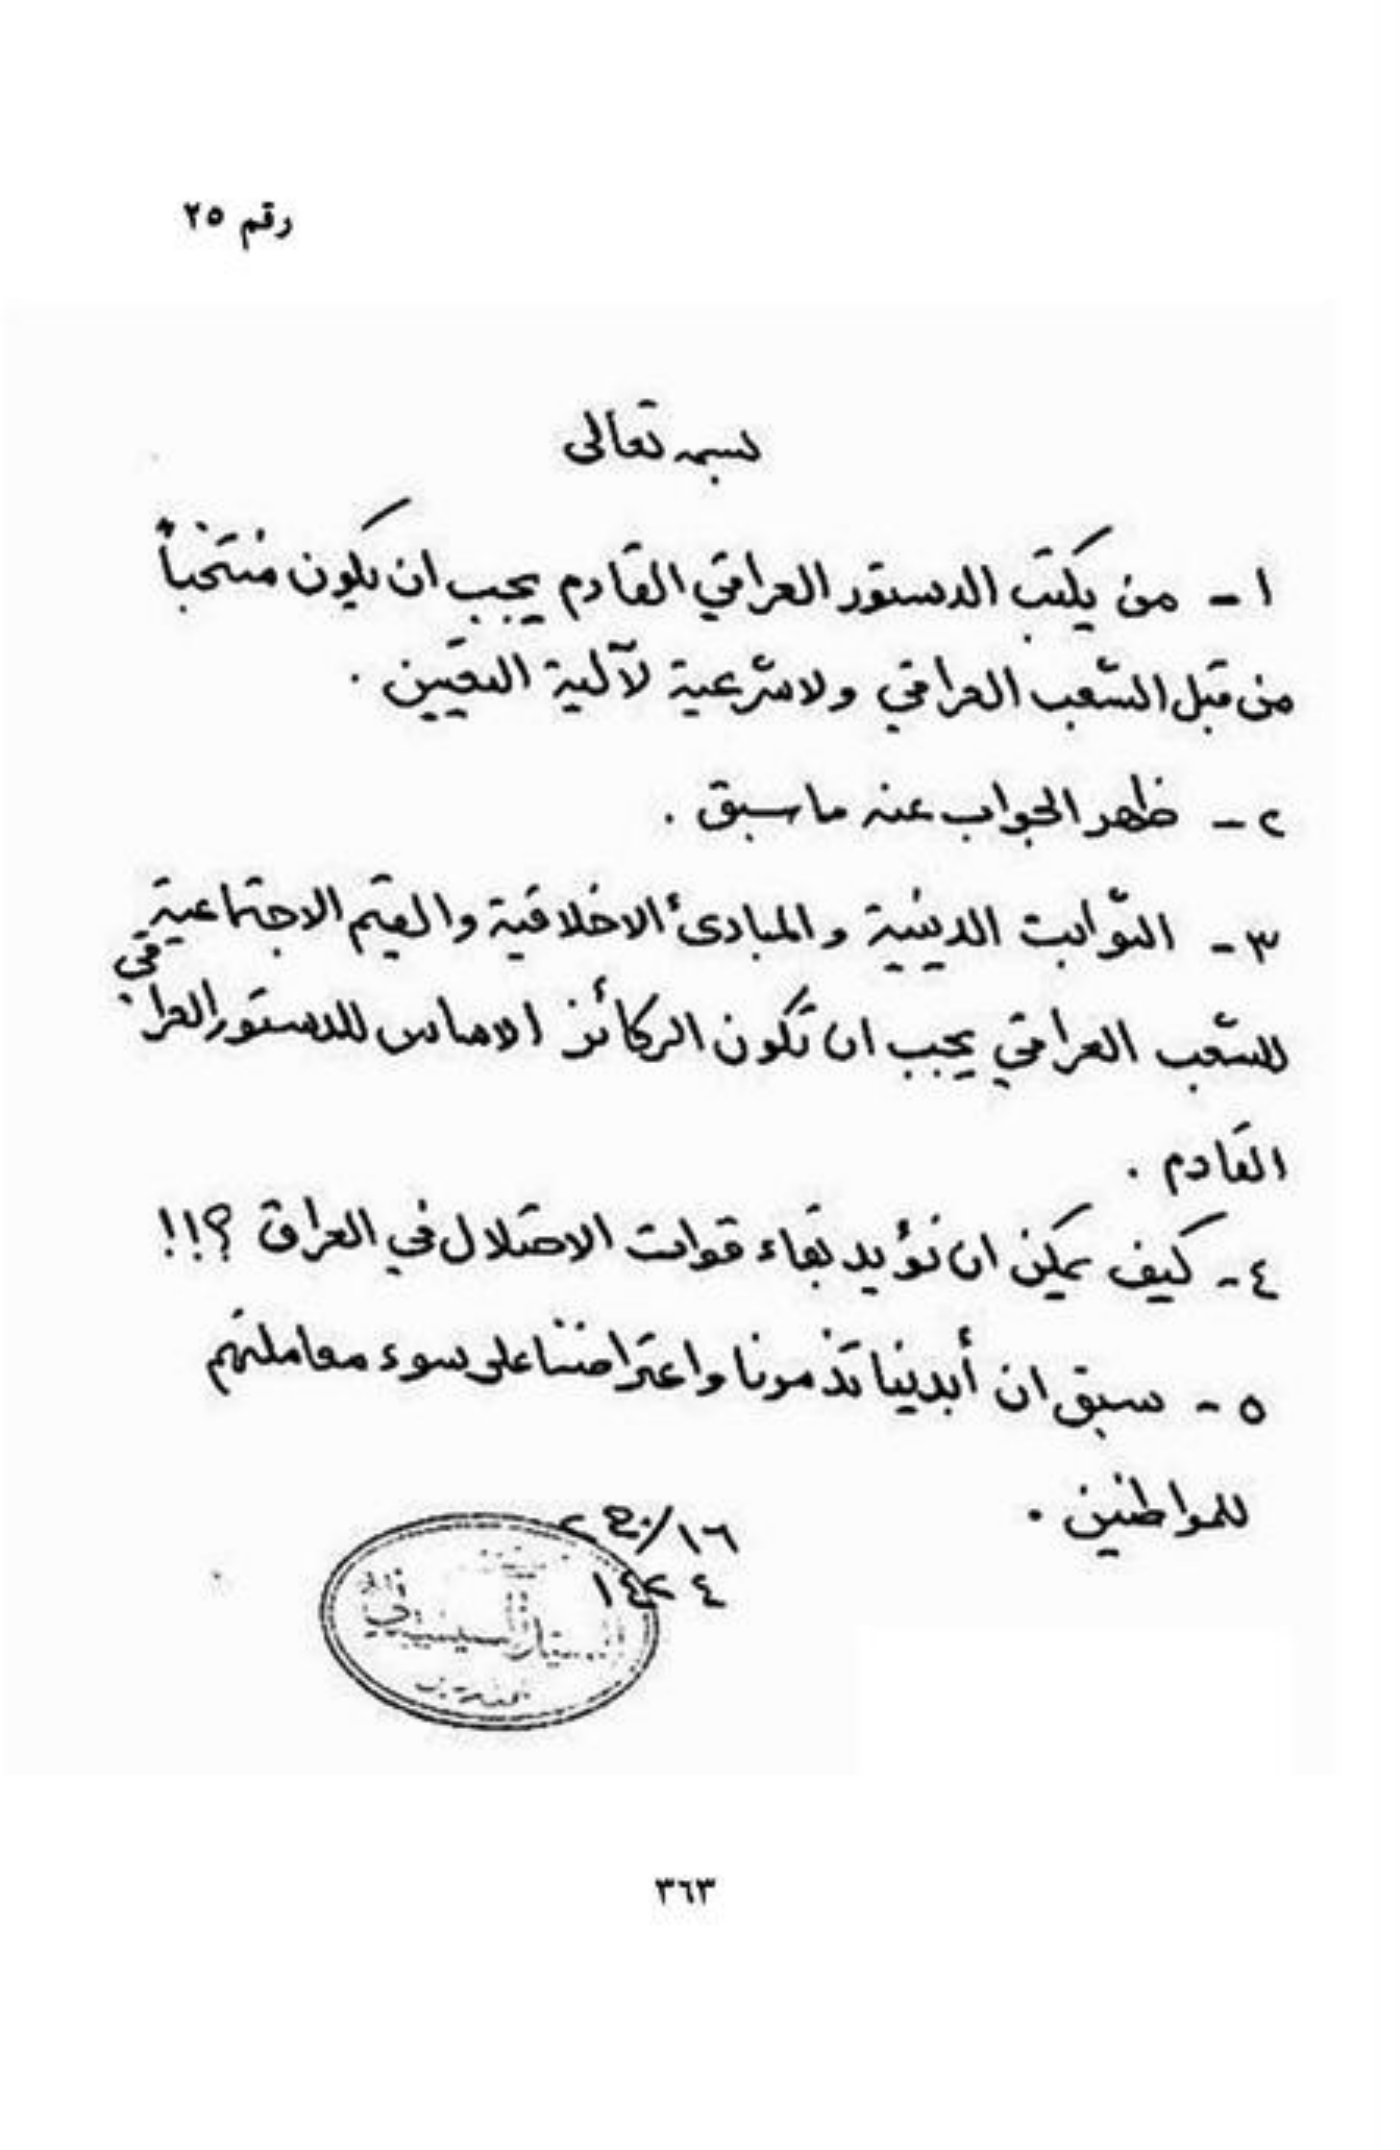 رقم ٢٥
بسمه تعالى
١ - من يكتب الدستور العراقي القادم يجب ان يكون منتخباً
من قبل الشعب العراقي ولا شرعية لآلية التعيين .
٢ - ظهر الجواب عنه ما سبق .
٣ - الثوابت الدينية والمبادئ الاخلاقية والقيم الاجتماعية
للشعب العراقي يجب ان تكون الركائز الاساس للدستور العراقي
القادم .
٤ - كيف يمكن ان نؤيد بقاء قوات الاحتلال في العراق ؟!!
٥ - سبق ان أبدينا تذمرنا واعتراضنا على سوء معاملتهم
للمواطنين .
١٦/
١٤٢٤
٣٦٣